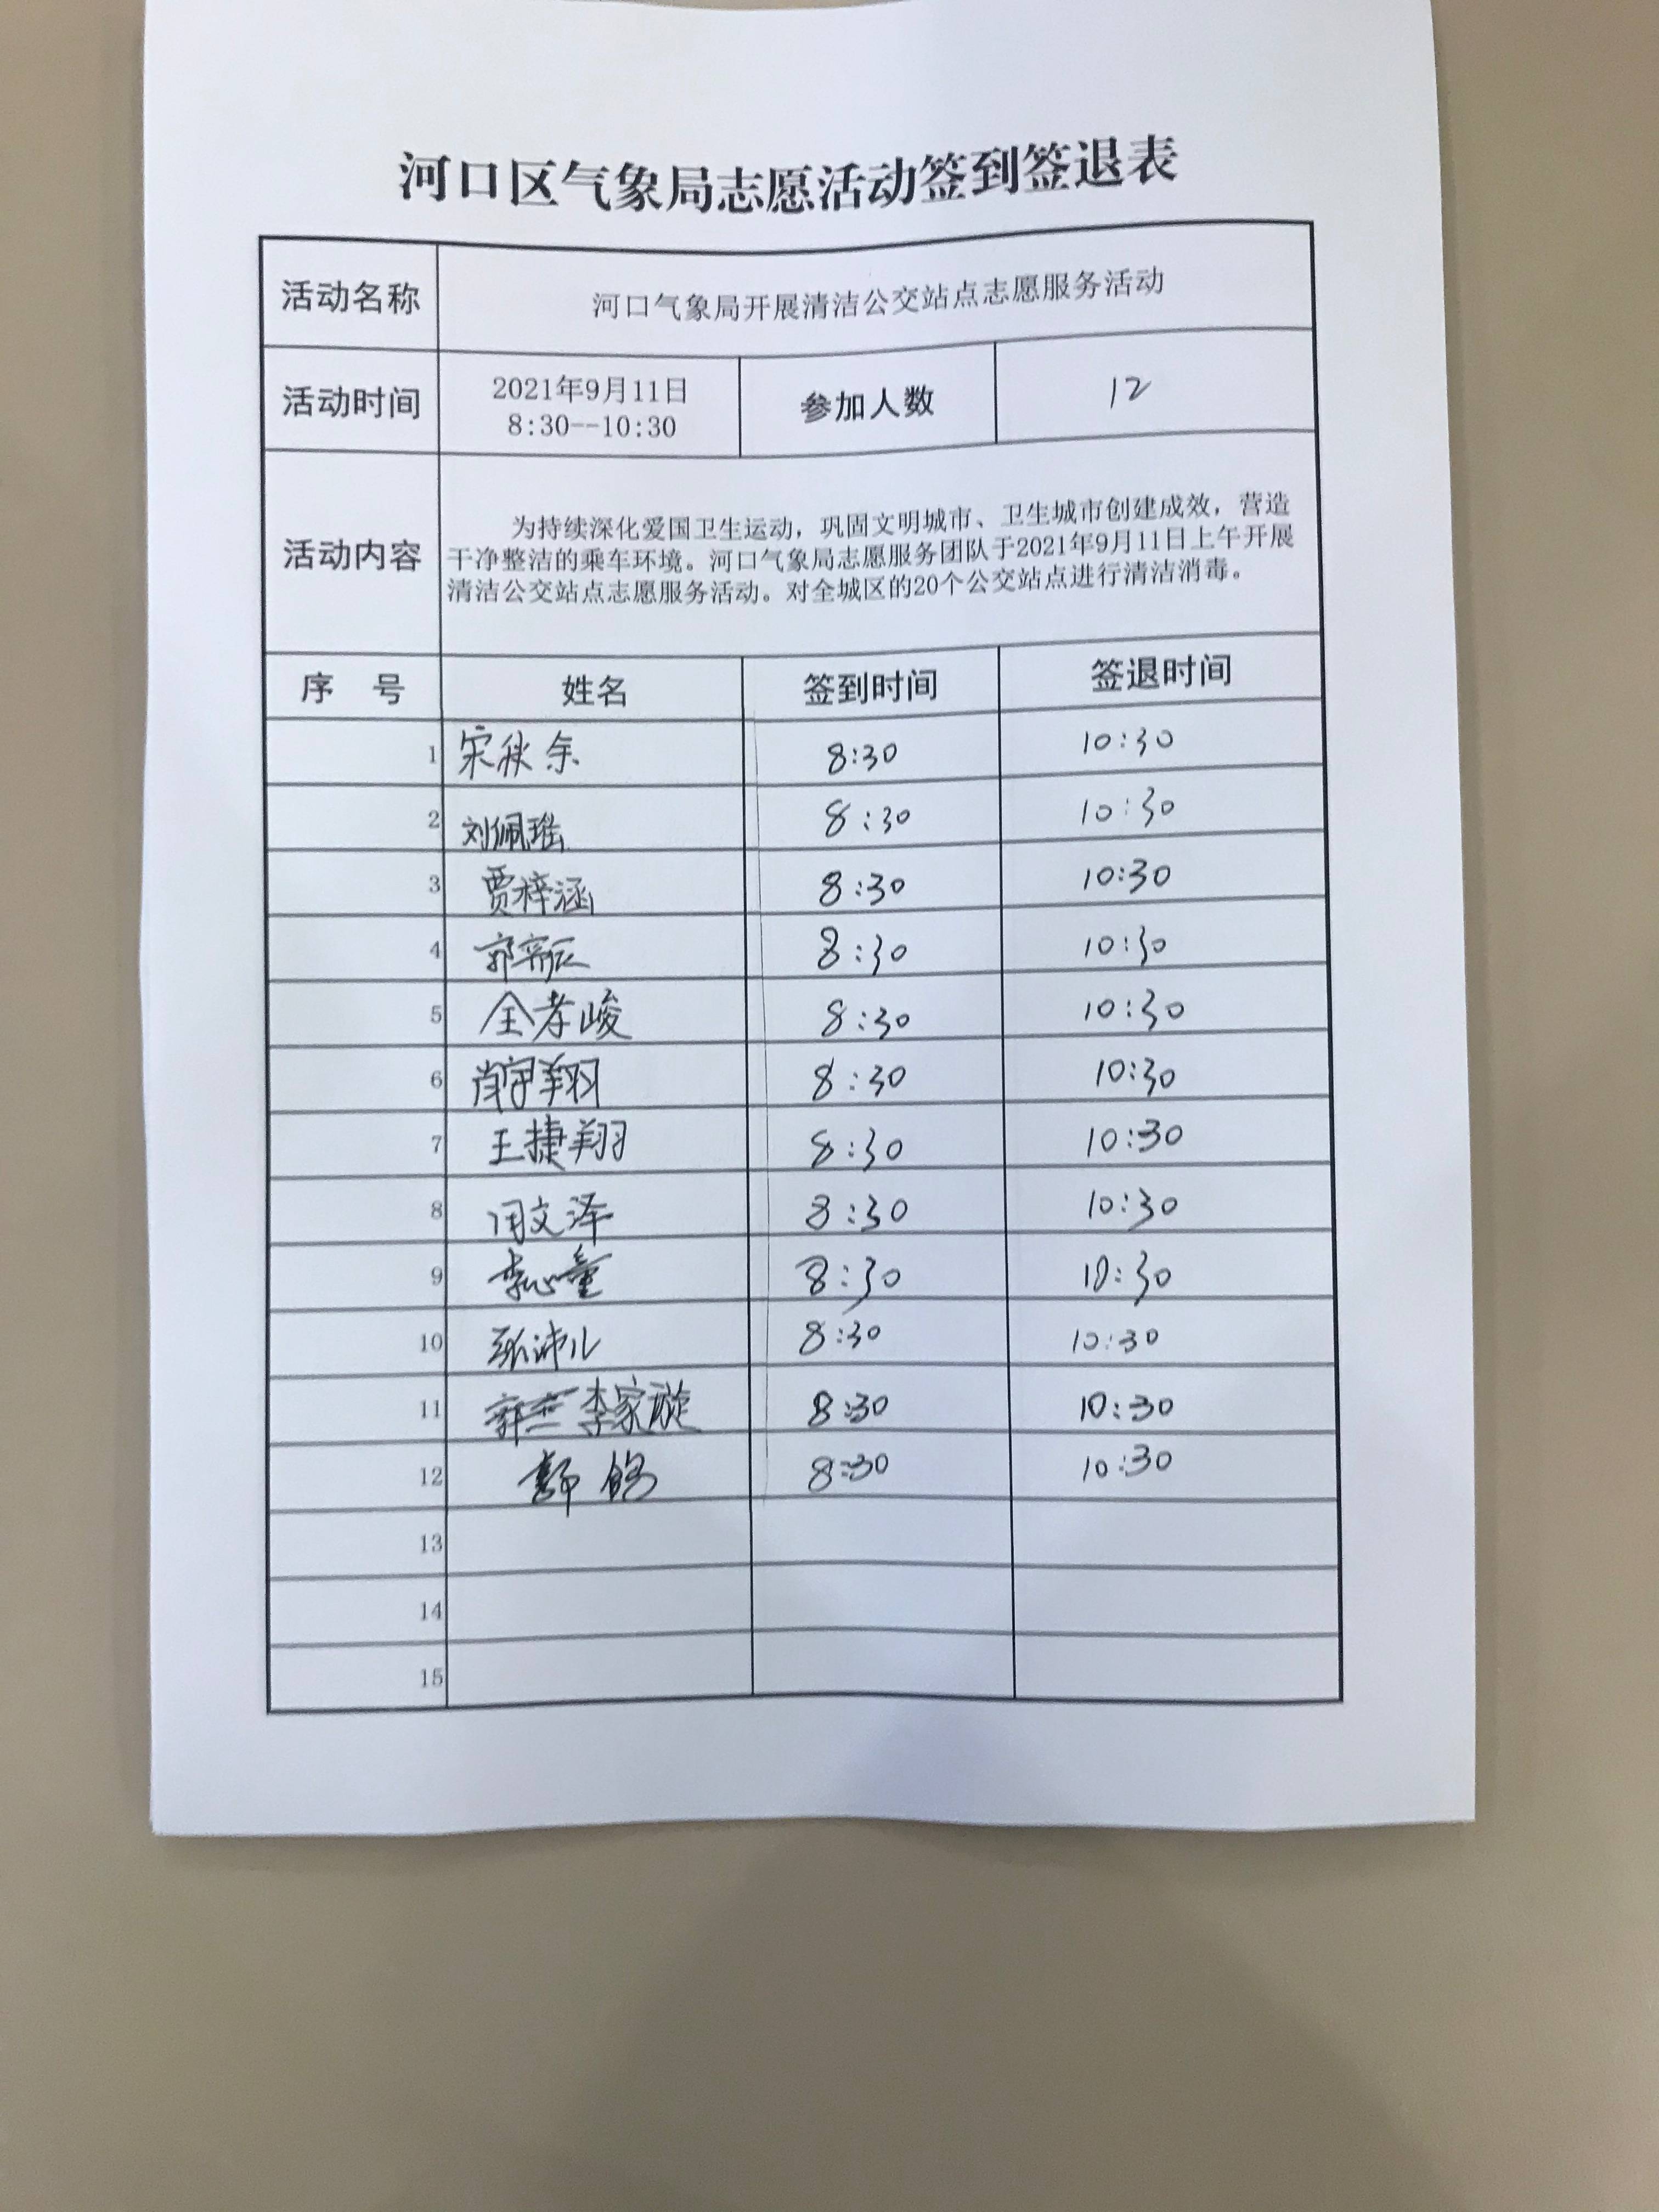 河口区气象局志愿活动签到签退表
活动名称 河口气象局开展清洁公交站点志愿服务活动
活动时间 2021年9月11日 8:30--10:30 参加人数 12
活动内容
为持续深化爱国卫生运动，巩固文明城市、卫生城市创建成效，营造
干净整洁的乘车环境。河口气象局志愿服务团队于2021年9月11日上午开展
清洁公交站点志愿服务活动。对全城区的20个公交站点进行清洁消毒。
序 号 姓名 签到时间 签退时间
1 宋秋余 8:30 10:30
2 刘佩瑶 8:30 10:30
3 贾梓涵 8:30 10:30
4 郭 8:30 10:30
5 全孝峻 8:30 10:30
6 肖宇翔 8:30 10:30
7 王捷翔 8:30 10:30
8 闫文泽 8:30 10:30
9 李心童 8:30 10:30
10 张沛儿 8:30 10:30
11 李家璇 8:30 10:30
12 8:30 10:30
13
14
15